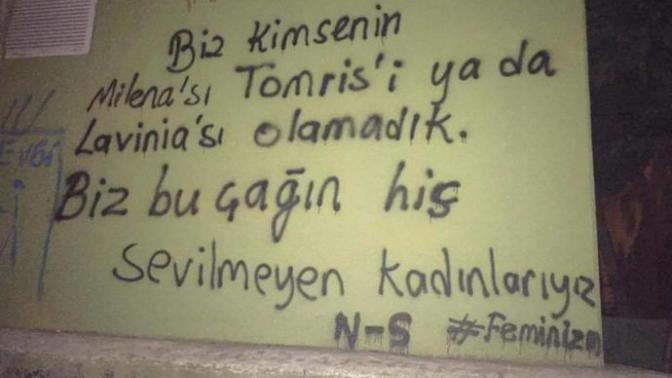 Biz Kimsenin
Milena'sı Tomris'i ya da
Lavinia'sı olamadık.
Biz bu çağın hiş
Sevilmeyen kadınlarıyız
N-S #Feminizm